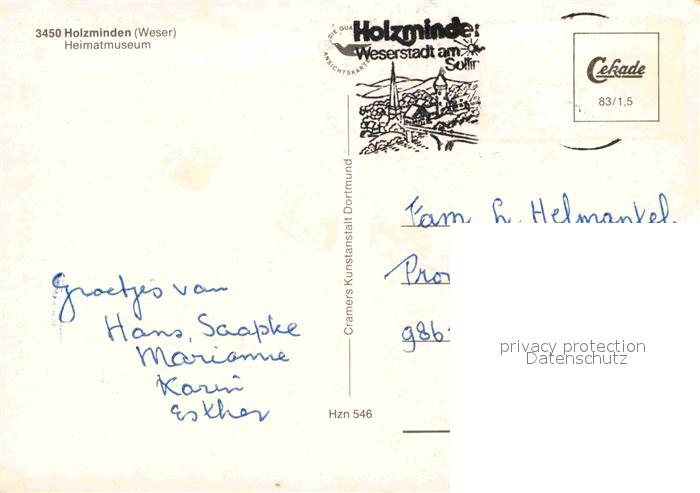 3450 Holzminden (Weser)
Heimatmuseum
DIE QUA
ANSICHTSKART
Holzminde
Weserstadt am
Solling
Cekade
83/1,5
Cramers Kunstanstalt Dortmund
Fam. L. Helmantel
Pro
986
Groetjes van
Hans, Saapke
Marianne
Karin
Esther
Hzn 546
privacy protection
Datenschutz